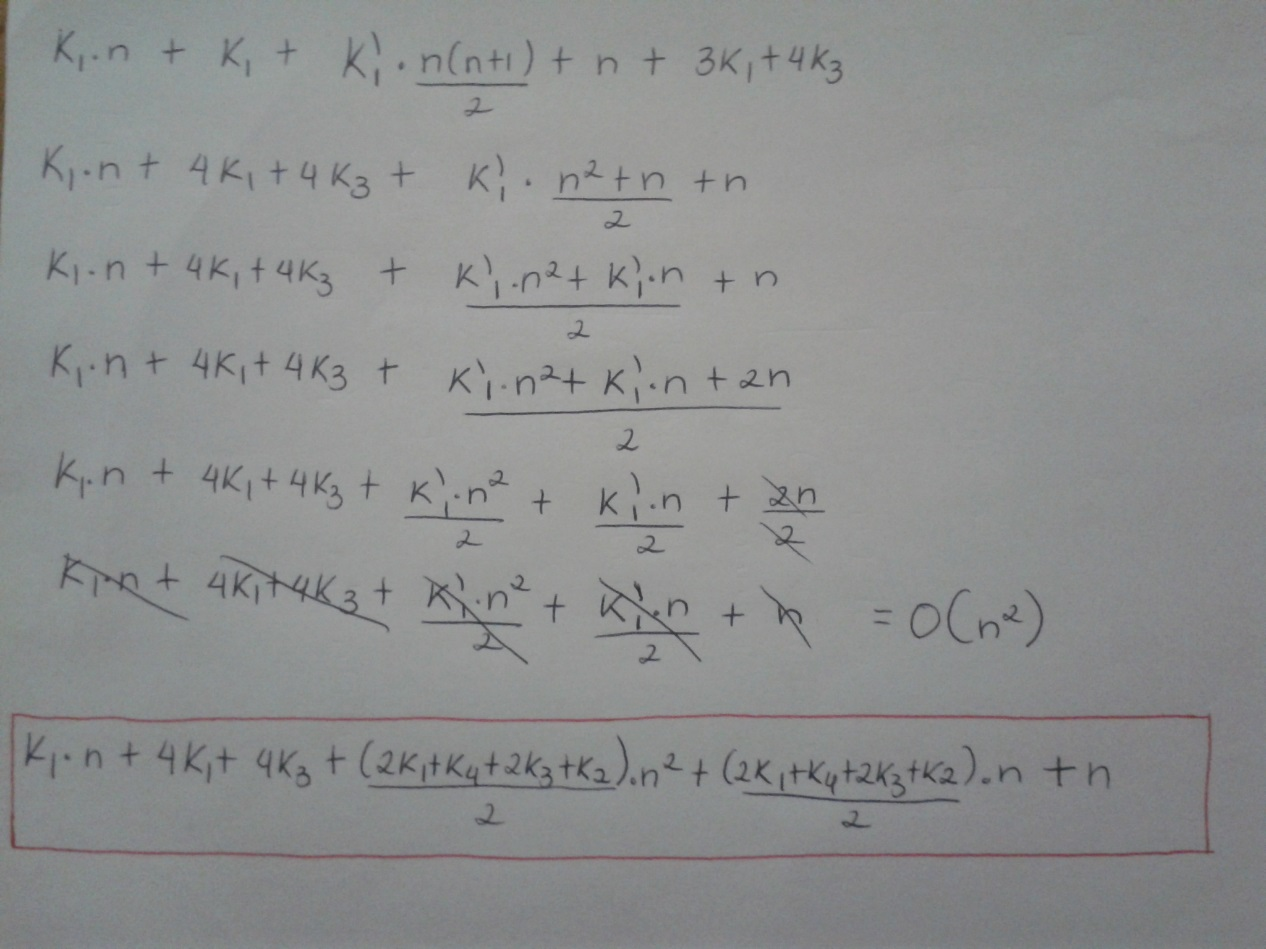 K₁·n + K₁ + K₁'·n(n+1)/2 + n + 3K₁+4K₃
K₁·n + 4K₁+4K₃ + K₁'·(n²+n)/2 + n
K₁·n + 4K₁+4K₃ + (K₁'·n²+K₁'·n)/2 + n
K₁·n + 4K₁+4K₃ + (K₁'·n²+K₁'·n+2n)/2
K₁·n + 4K₁+4K₃ + K₁'·n²/2 + K₁'·n/2 + 2n/2
K₁·n + 4K₁+4K₃ + K₁'·n²/2 + K₁'·n/2 + n = O(n²)
K₁·n + 4K₁+4K₃ + (2K₁+K₄+2K₃+K₂)/2·n² + (2K₁+K₄+2K₃+K₂)/2·n + n